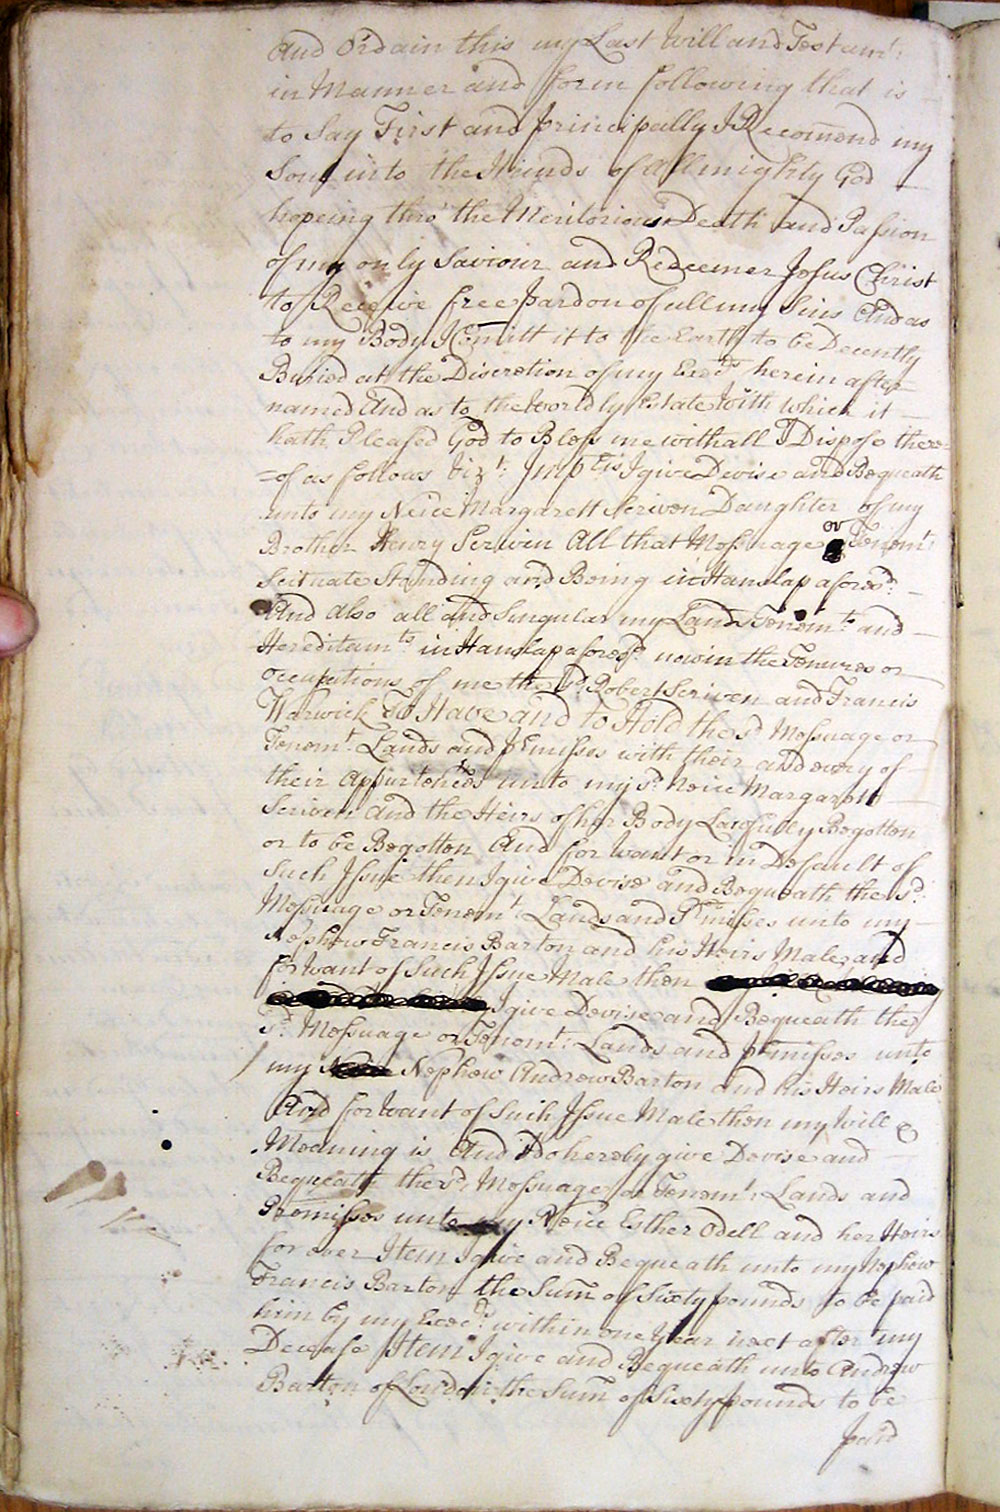 And Ordain this my Last Will and Testamt:
in Manner and form following that is
to Say First and principally I Recomend my
Soul into the Hands of Allmighty God
hopeing thro' the Meritorious Death and Passion
of my only Saviour and Redeemer Jesus Christ
to Receive free pardon of all my Sins And as
to my Body I Comitt it to the Earth to be Decently
Buried at the Discretion of my Execr. herein after
named And as to the Worldly Estate with which it
hath Pleased God to Bless me withall I Dispose there=
=of as follows Vizt: Impris I give Devise and Bequeath
unto my Neice Margarett Scriven Daughter of my
Brother Henry Scriven All that Messuage or Tenemt:
Scituate Standing and Being in Hanslap aforesd:
And also all and Singular my Lands Tenemts and
Hereditamts in Hanslap aforesd. now in the Tenures or
occupations of me the sd. Robert Scriven and Francis
Warwick To Have and to Hold the sd Messuage or
Tenemt. Lands and Premisses with their and every of
their Appurtences unto my sd. Neice Margarett
Scriven And the Heirs of her Body Lawfully Begotten
or to be Begotten And for want or in Default of
Such Issue then I give Devise and Bequeath the sd.
Messuage or Tenemt. Lands and Premisses unto my
Nephew Francis Barton and his Heirs Male and
for want of Such Issue Male then
I give Devise and Bequeath the
sd. Messuage or Tenemt: Lands and Premisses unto
my Nephew Andrew Barton and his Heirs Male
And for want of Such Issue Male then my Will &
Meaning is And I Do hereby give Devise and
Bequeath the sd. Messuage or Tenemt: Lands and
Premisses unto my Neice Esther Odell and her Heirs
for ever Item I give and Bequeath unto my Nephew
Francis Barton the Sum of Sixty pounds to be paid
him by my Execr. within one Year next after my
Decease Item I give and Bequeath unto Andrew
Barton of London the Sum of Sixty pounds to be
paid